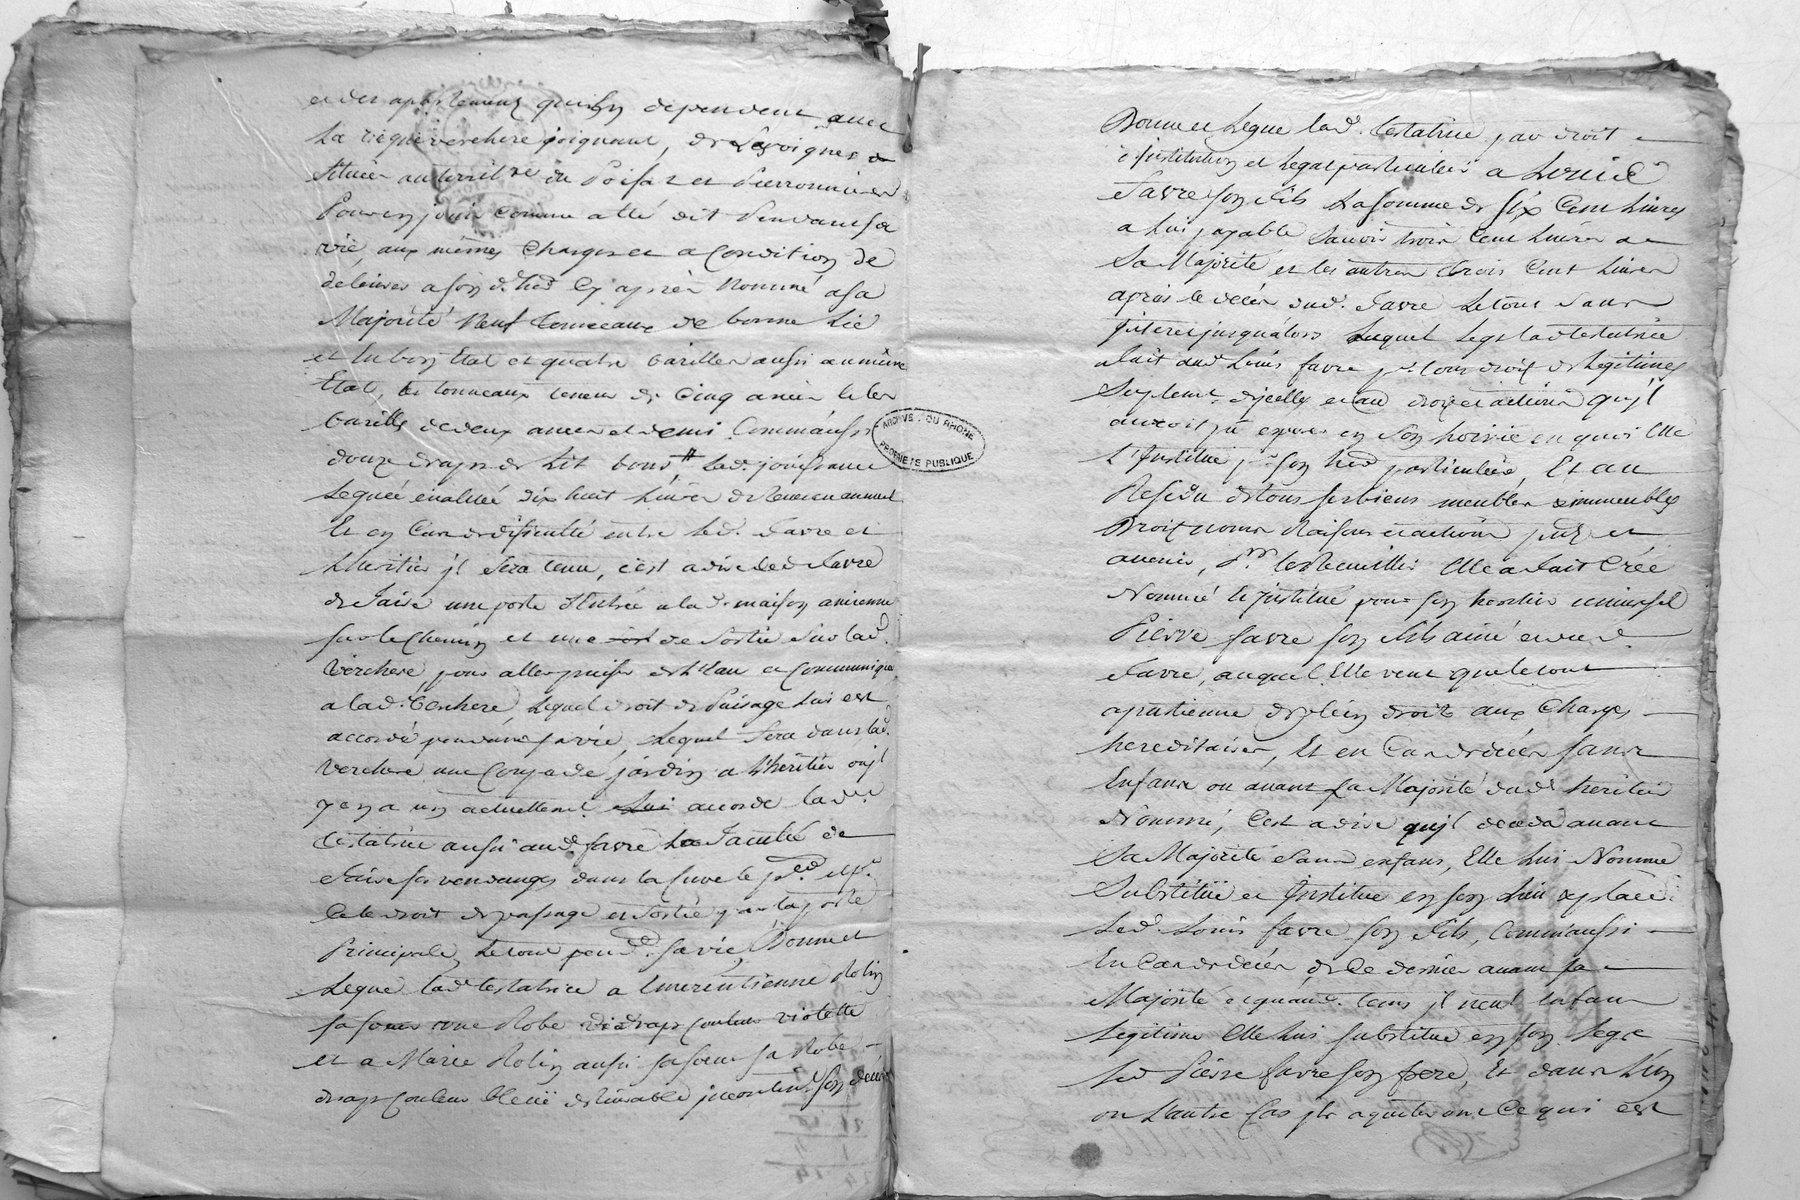 et des apartements quisy dependent avec
La tieque verchere joignant, & des vignes
situées au territre du Poisat et Pierronnieres
Pour en jouir comme a été dit Pendant sa
vie, aux mêmes Charges et a Condition de
delivrer a son d. hed Cy après Nommé, a sa
Majorité Neuf tonneaux de bonne Lie
et En bon Etat et quatre barilles aussi au même
Etat, les tonneaux teneur de Cinq anées & les
barills de deux anees et demi Comm'aussi
douze draps de Lit bons # Led. jouissance
Leguée évaluée dix huit Livres de Revenu annuel
Et en Cas de difficulté entre Led. favre et
L'heritier jl sera tenu, c'est a dire Led favre
de faire une porte d'Entrée a la d. maison ancienne
sur le Chemin et une de Sortie sur lad.
Verchere, pour aller puiser de L'Eau et Communiquer
a lad. Verchere, Lequel droit de Puisage Lui est
accordé pendant sa vie, Lequel sera dans lad.
verchere une Coupade jardin a L'heritier ou jl
y en a un actuellemt. accorde lad.
testatrice aussi aud. favre La Faculté de
faire ses vendanges dans la Cuve le
Et le droit de passage et sortie par la porte
Principale, Le tout pend. sa vie, Donne et
Legue lad testatrice a Emerentienne Robin
sa soeur une Robe de drap Couleur violette
et a Marie Robin aussi sa soeur sa Robe
drap Couleur bleüe délivrable jncontint. son décès
ARCHIVES DU RHONE
PROPRIETE PUBLIQUE
Donne et Legue lad. testatrice par droit
d'jnstitution et Legat particulier a Louis
favre son fils La somme de six Cent Livres
a Lui payable savoir trois Cent Livres a
sa Majorité et les autres trois Cent Livres
après le décès dud. favre Le tout sans
jnteret jusqu'alors Lequel Legs lad testatrice
a fait aud Louis favre pr. tous droits de Legitimes
Supplemt. d'jcelle et au droits et actions qu'jl
auroit pû exposer en son hoirie en quoi Elle
L'Institue pr. son hed particulier, Et au
Residu de tous ses biens meubles & immeubles
Droits noms Raisons et actions pnts et
avenir, Elle a fait Créé
Nommé & jnstitué pour son heritier universel
Pierre favre son fils ainé et dud
favre, auquel Elle veut que le tout
apartienne de plein droit aux Charges
hereditaires, Et en Cas de décès sans
Enfans ou avant sa Majorité dud. heritier
Nommé, C'est a dire qu'jl décéda avant
sa Majorité sans enfans, Elle lui Nomme
Substitüe et Institue en son Lieu & place
Led. Louis favre son fils, Comm'aussi
En Cas de décès de Ce dernier avant sa
Majorité et quand. tems jl n'eut Enfans
Legitime Elle Lui Substitue en son Legs
Led Pierre favre son frere, Et dans L'un
ou L'autre Cas jls aquiteront Ce qui est